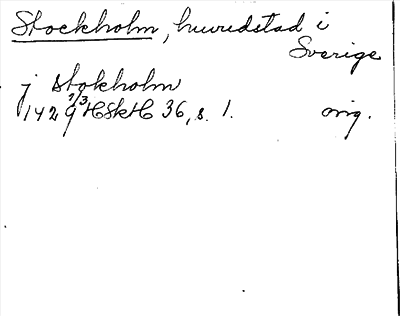 Stockholm, huvudstad i
Sverige
j stokholm
1429 7/3 HSkH 36, s. 1. orig.